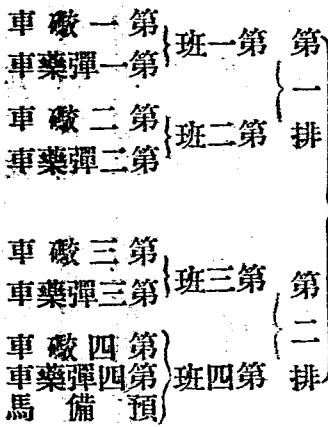 第一排
第一班
第一礮車
第一彈藥車
第二班
第二礮車
第二彈藥車
第二排
第三班
第三礮車
第三彈藥車
第四班
第四礮車
第四彈藥車
預備馬